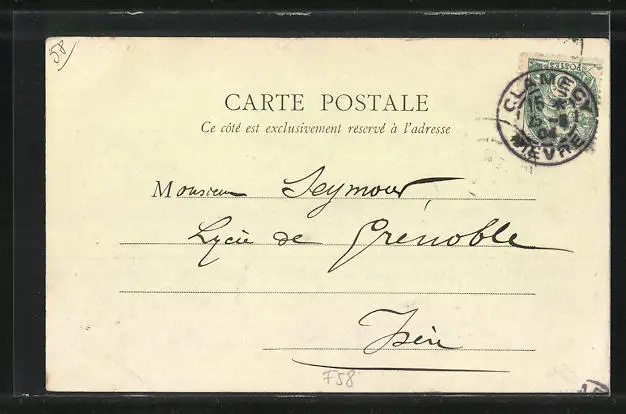 58
CARTE POSTALE
Ce côté est exclusivement réservé à l'adresse
CLAMECY
15
04
NIÈVRE
POSTES
Monsieur Seymour,
Lycée de Grenoble
Isère
F58